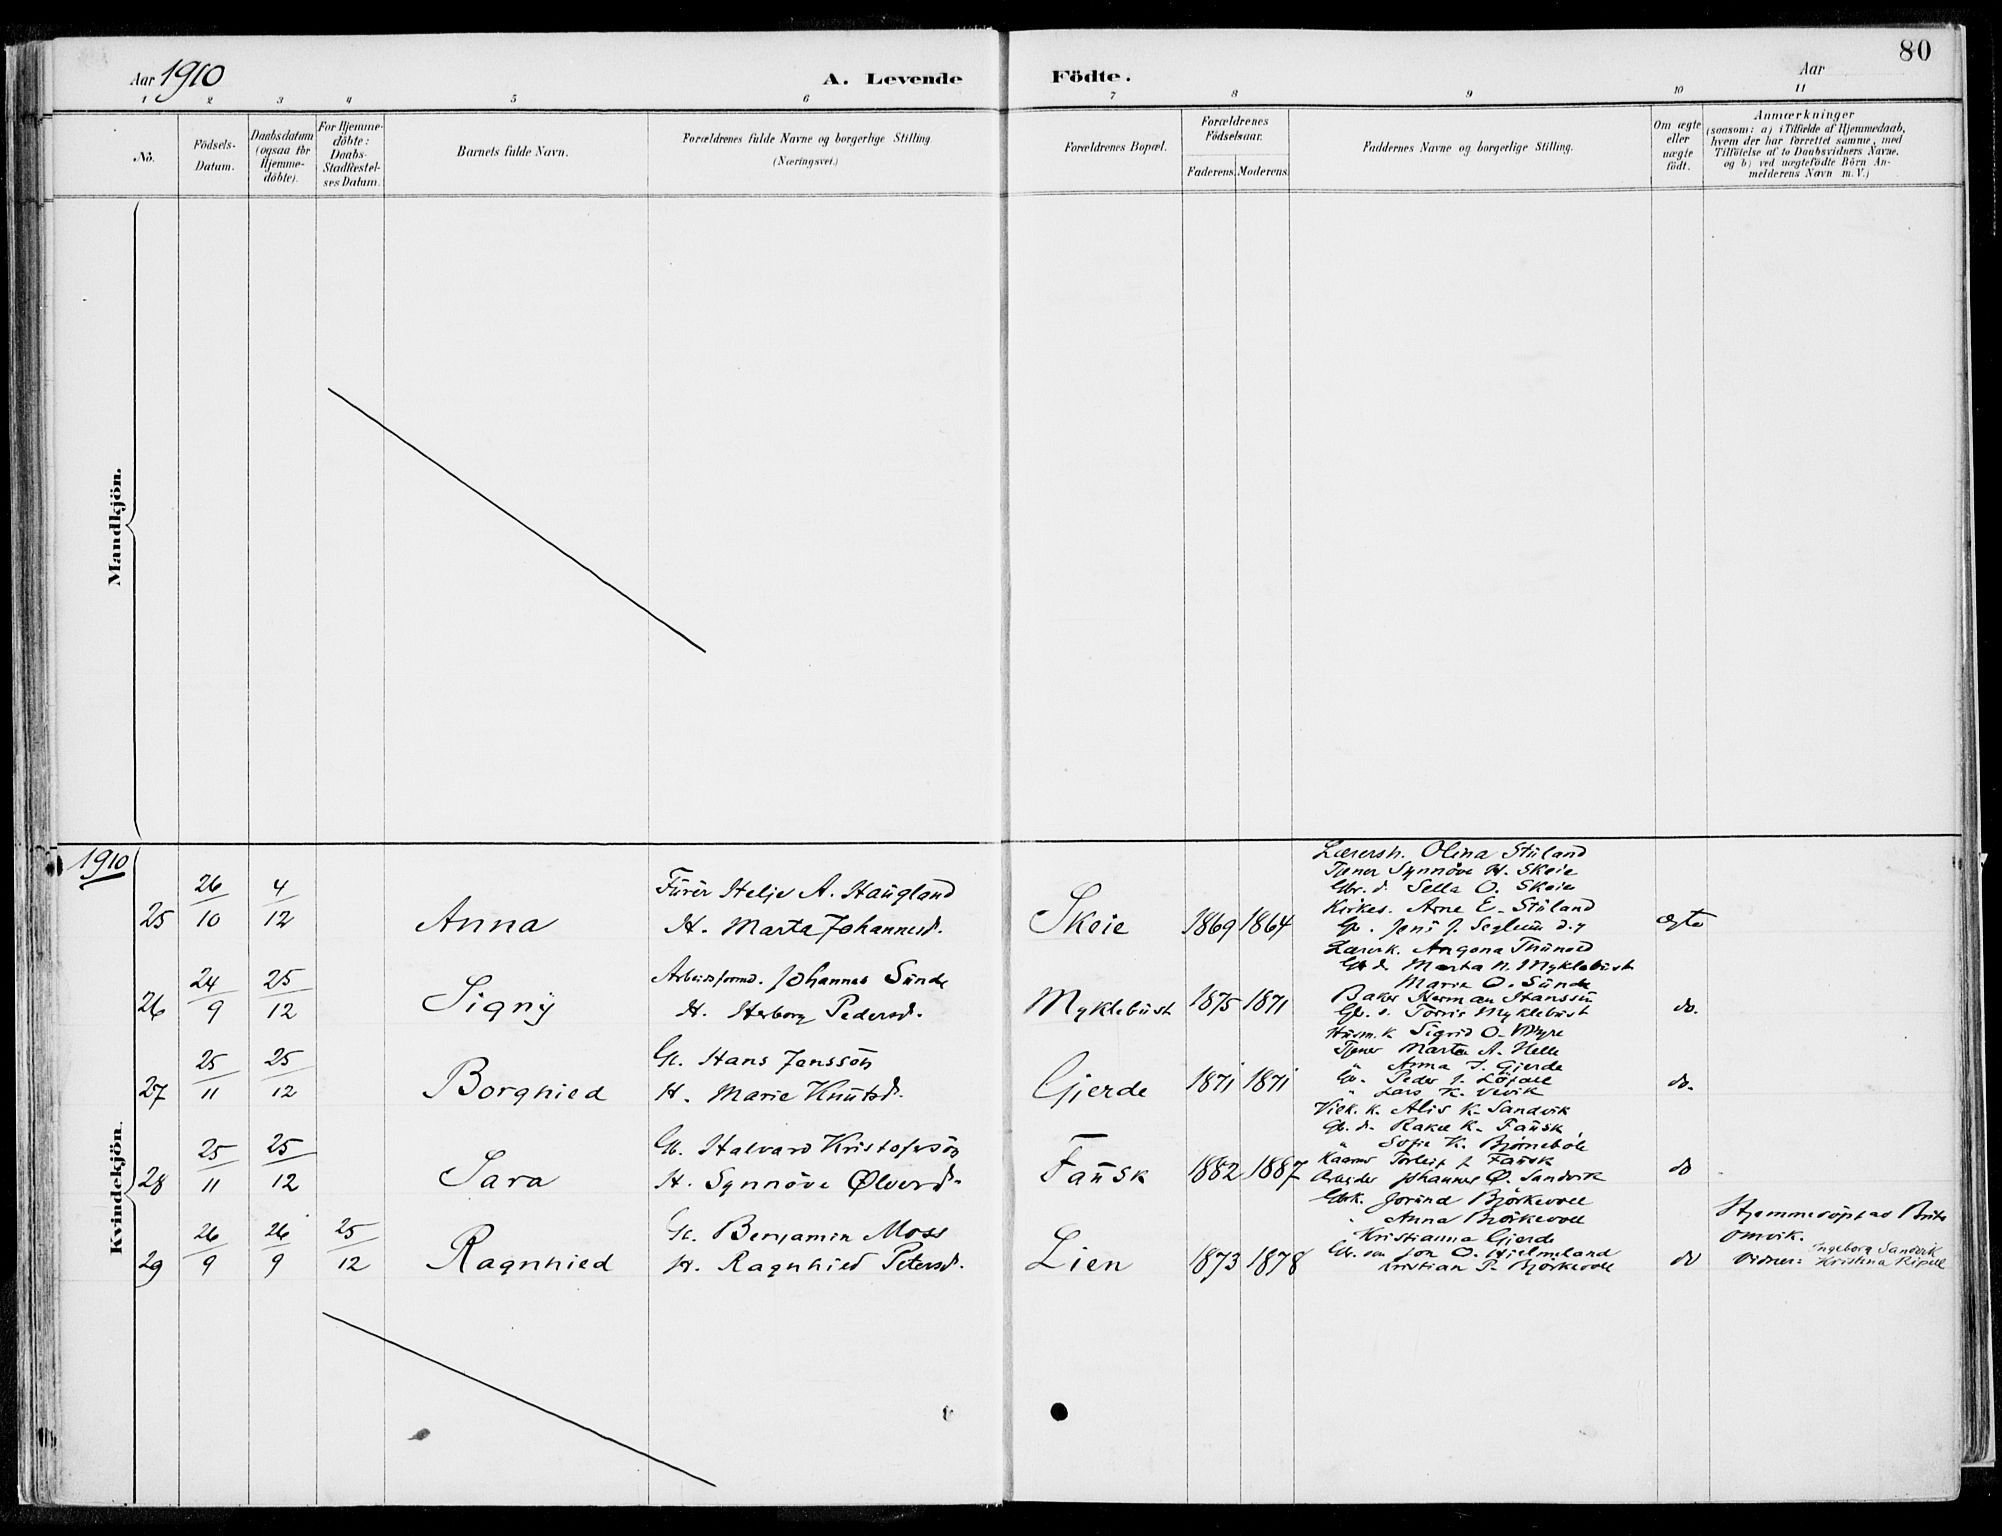 80
Aar 1910
A. Levende
Födte.
Aar
1 2 3 4 5 6 7 8 9 10 11
No.
Födsels-
Datum.
Daabsdatum
(ogsaa for
Hjemme-
döbte).
For Hjemme-
döbte:
Daabs-
Stadfæstel-
ses Datum.
Barnets fulde Navn.
Forældrenes fulde Navne og borgerlige Stilling
(Næringsvei.)
Forældrenes Bopæl.
Forældrenes
Födselsaar.
Faderens.
Moderens.
Faddernes Navne og borgerlige Stilling.
Om ægte
eller
uægte
födt.
Anmærkninger
(saasom: a) i Tilfælde af Hjemmedaab,
hvem der har forrettet samme, med
Tilföielse af to Daabsvidners Navne,
og b) ved uægtefödte Börn An-
melderens Navn m. V.)
Mandkjön.
1910
Kvindekjön.
25
26/10
4/12
Anna
Furér Helje A. Haugland
H. Marta Johannesd.
Skeie
1869 1864
Lærersh. Olina Stuland
Tjener Synnöve H. Skeie
Gbr. d. Sella O. Skeie
Kirkes. Arne E. Stuland
ægte
26
24/9
25/12
Signy
Arbeidsformd. Johannes Sunde
H. Herborg Pedersd.
Myklebust
1875 1871
Gb. d. Marta N. Myklebust
Marie O. Sunde
Baker Herman Hanssen
Gb. s. Torris Myklebust
do.
27
25/11
25/12
Borghied
G. Hans Jansson
H. Marie Knutsd.
Gjerde
1871 1871
Husm. k. Sigrid O. Myre
Tjener Marta A. Helle
" Anna J. Gjerde
" Lars K. Vevik
do.
28
25/11
25/12
Sara
Gb. Halvard Kristoferson
H. Synnöve Ølversd.
Fausk
1882 1887
Alis K. Sandvik
Gb. d. Rakel K. Fausk
" Sofie K. Björneböle
Torleif J. Fausk
Arbejder Johannes Ø. Sandvik
do
29
26/9
26/9
25/12
Ragnhied
G. Benjamin Moss
H. Ragnhied Petersd.
Lien
1873 1878
Gbk. Jorund Björkevoll
" Anna Björkevoll
Kristianna Gjerde
Gb. søn Jon O. Hjelmeland
Kristian P. Björkevoll
do
Hjemmedöpt av Brita
Omvik.
Vidner: Ingeborg Sandvik
Kristina Ripell